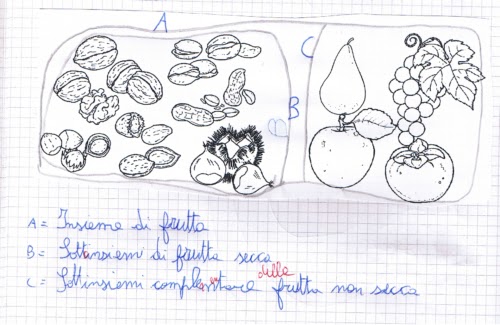 A
C
B
B
A = Insieme di frutta
B = Sottinsiemi di frutta secca
della
C = Sottinsiemi complementare frutta non secca